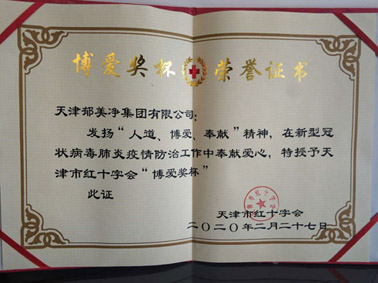 博爱奖杯 荣誉证书
天津郁美净集团有限公司：
发扬“人道、博爱、奉献”精神，在新型冠
状病毒肺炎疫情防治工作中奉献爱心，特授予天
津市红十字会“博爱奖杯”
此证
天津市红十字会
二〇二〇年二月二十七日